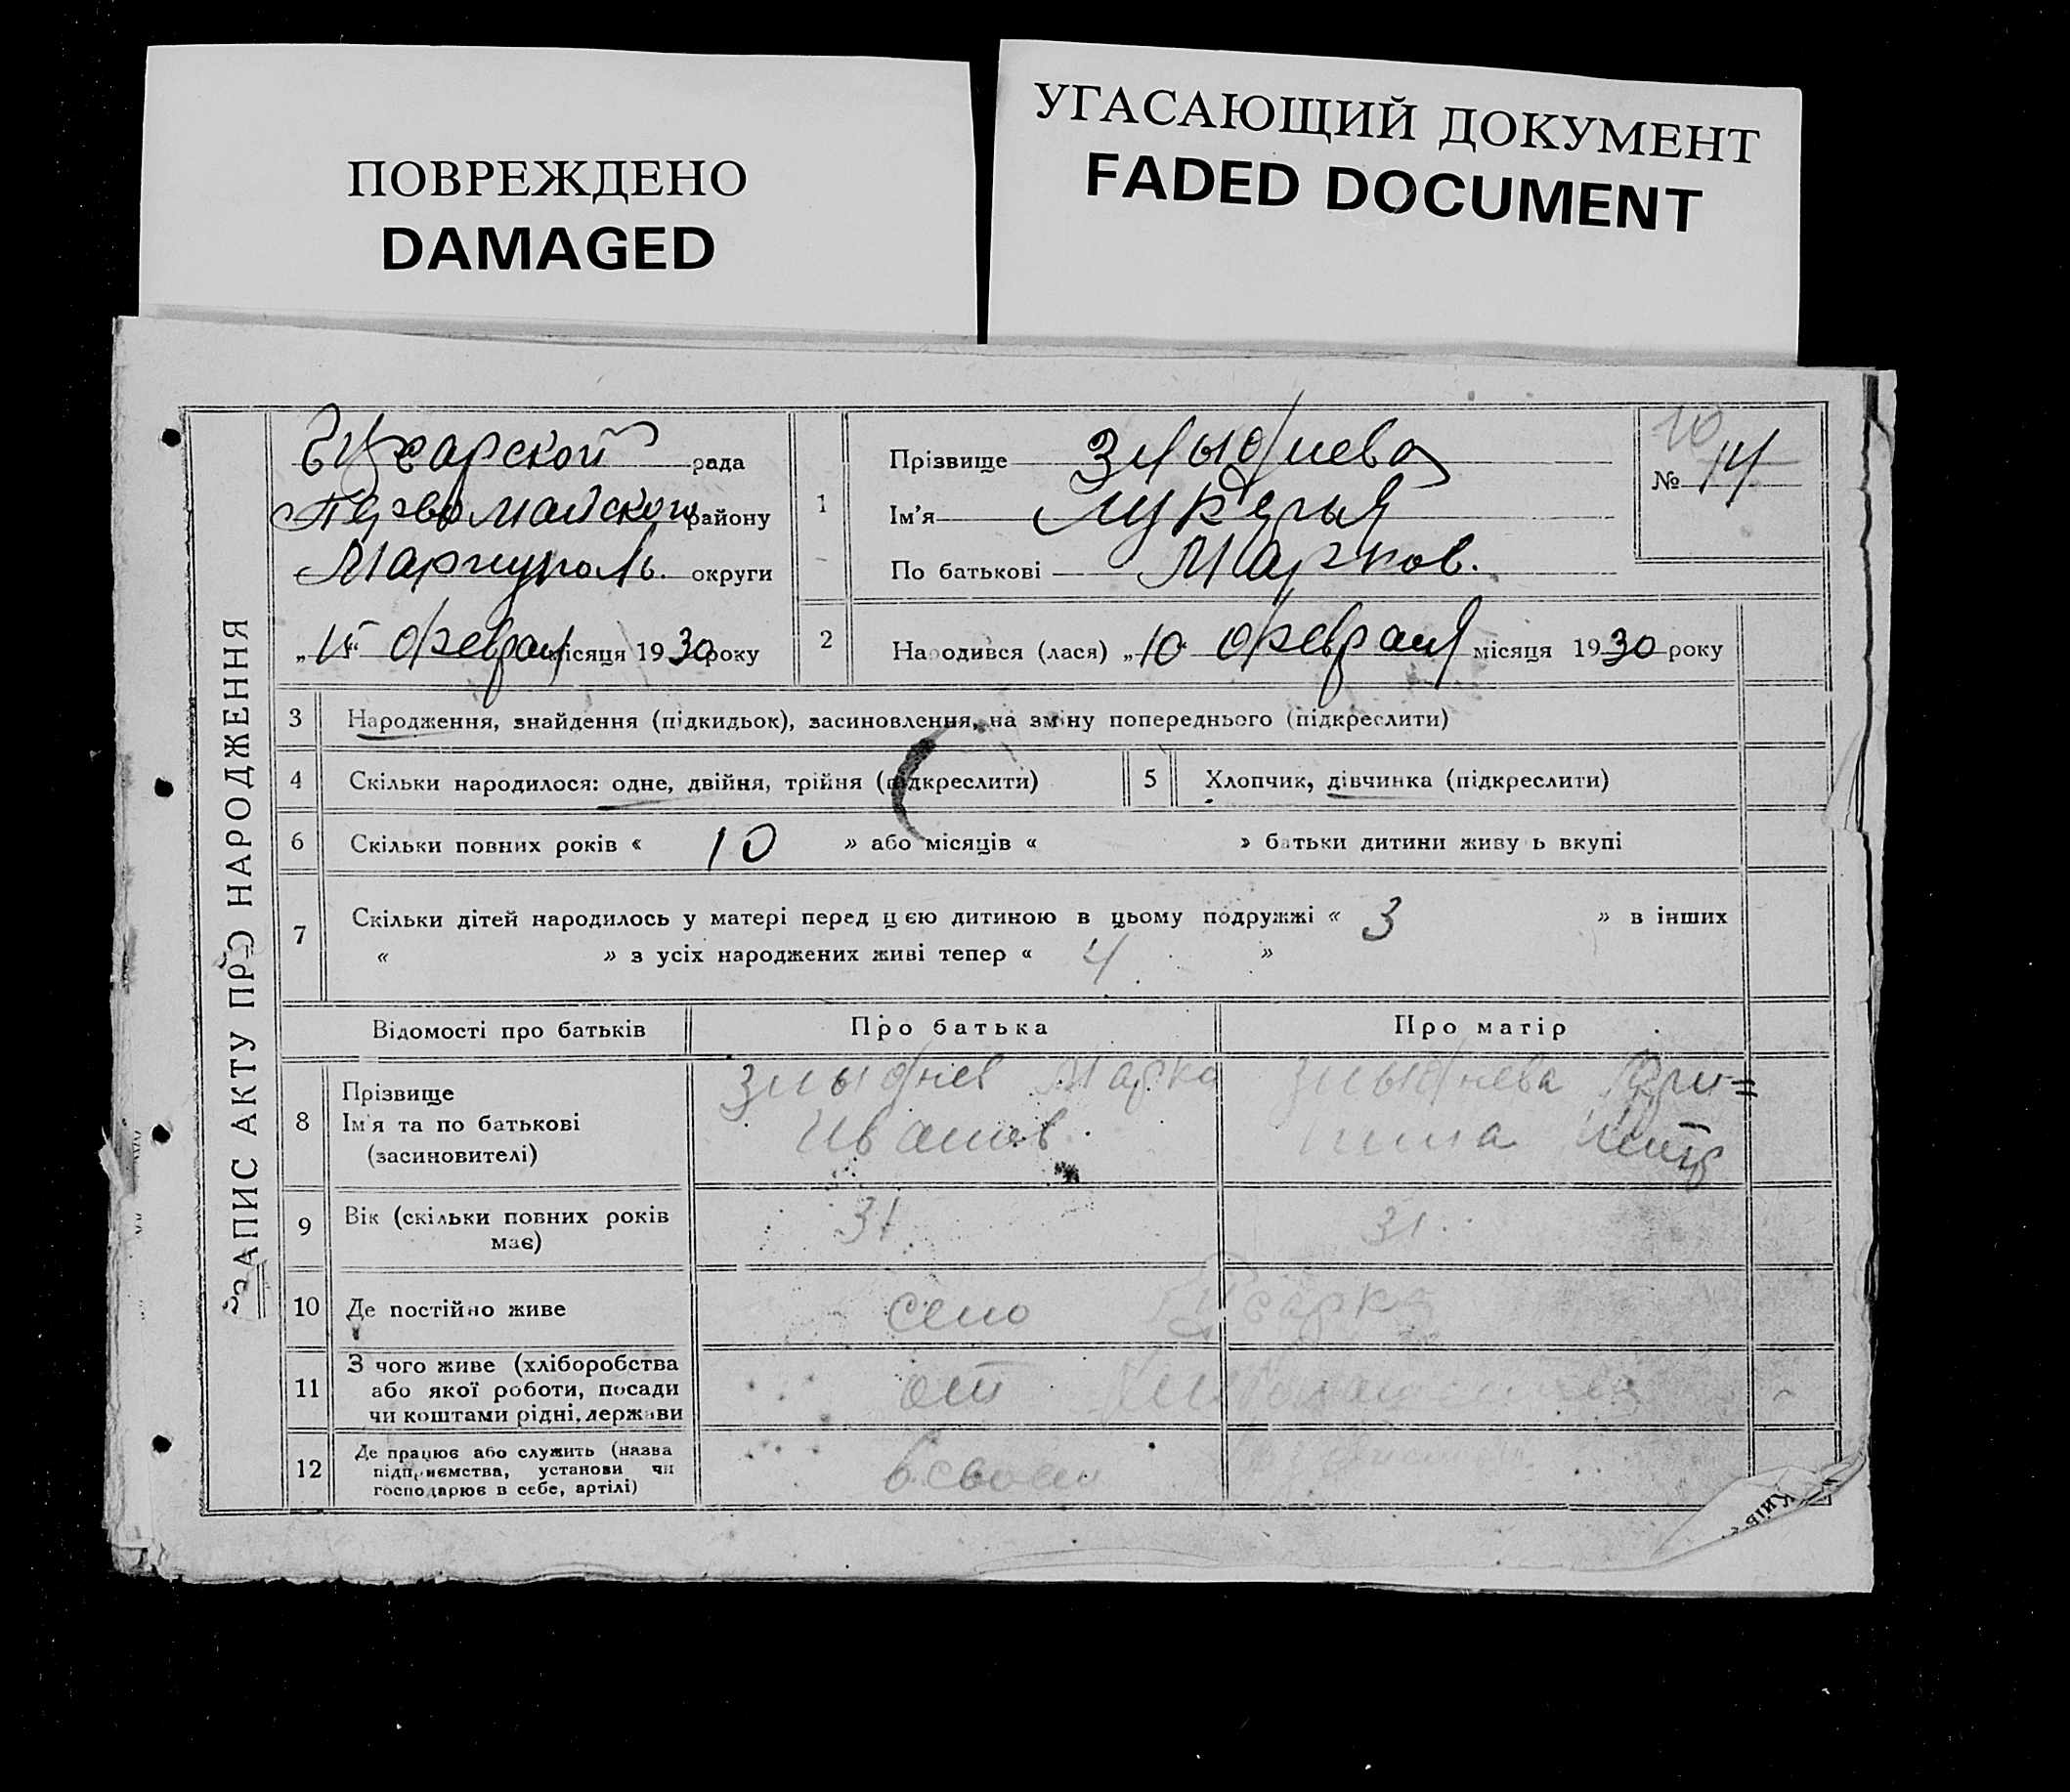 ПОВРЕЖДЕНО
DAMAGED
УГАСАЮЩИЙ ДОКУМЕНТ
FADED DOCUMENT
ЗАПИС АКТУ ПРО НАРОДЖЕННЯ
рада
Первомайском району
Мариуполь. округи
„15“ февраля місяця 1930 року
1
Прізвище Злыднева
Ім'я Лукерья
По батькові Марков.
10
№ 14
2
Народився (лася) „10 февраля місяця 1930 року
3 Народження, знайдення (підкидьок), засиновлення, на зміну попереднього (підкреслити)
4 Скільки народилося: одне, двійня, трійня (підкреслити)
5 Хлопчик, дівчинка (підкреслити)
6 Скільки повних років « 10 » або місяців « » батьки дитини живуть вкупі
7 Скільки дітей народилось у матері перед цією дитиною в цьому подружжі « 3 » в інших
« » з усіх народжених живі тепер « 4 »
Відомості про батьків
Про батька
Про матір
8 Прізвище
Ім'я та по батькові
(засиновителі)
Злыднев Марко
Иванов.
Злыднева
9 Вік (скільки повних років
має)
31
31
10 Де постійно живе
село
11 З чого живе (хліборобства
або якої роботи, посади
чи коштами рідні, держави
от
12 Де працює або служить (назва
підприємства, установи чи
господарює в себе, артілі)
в своем
Київ